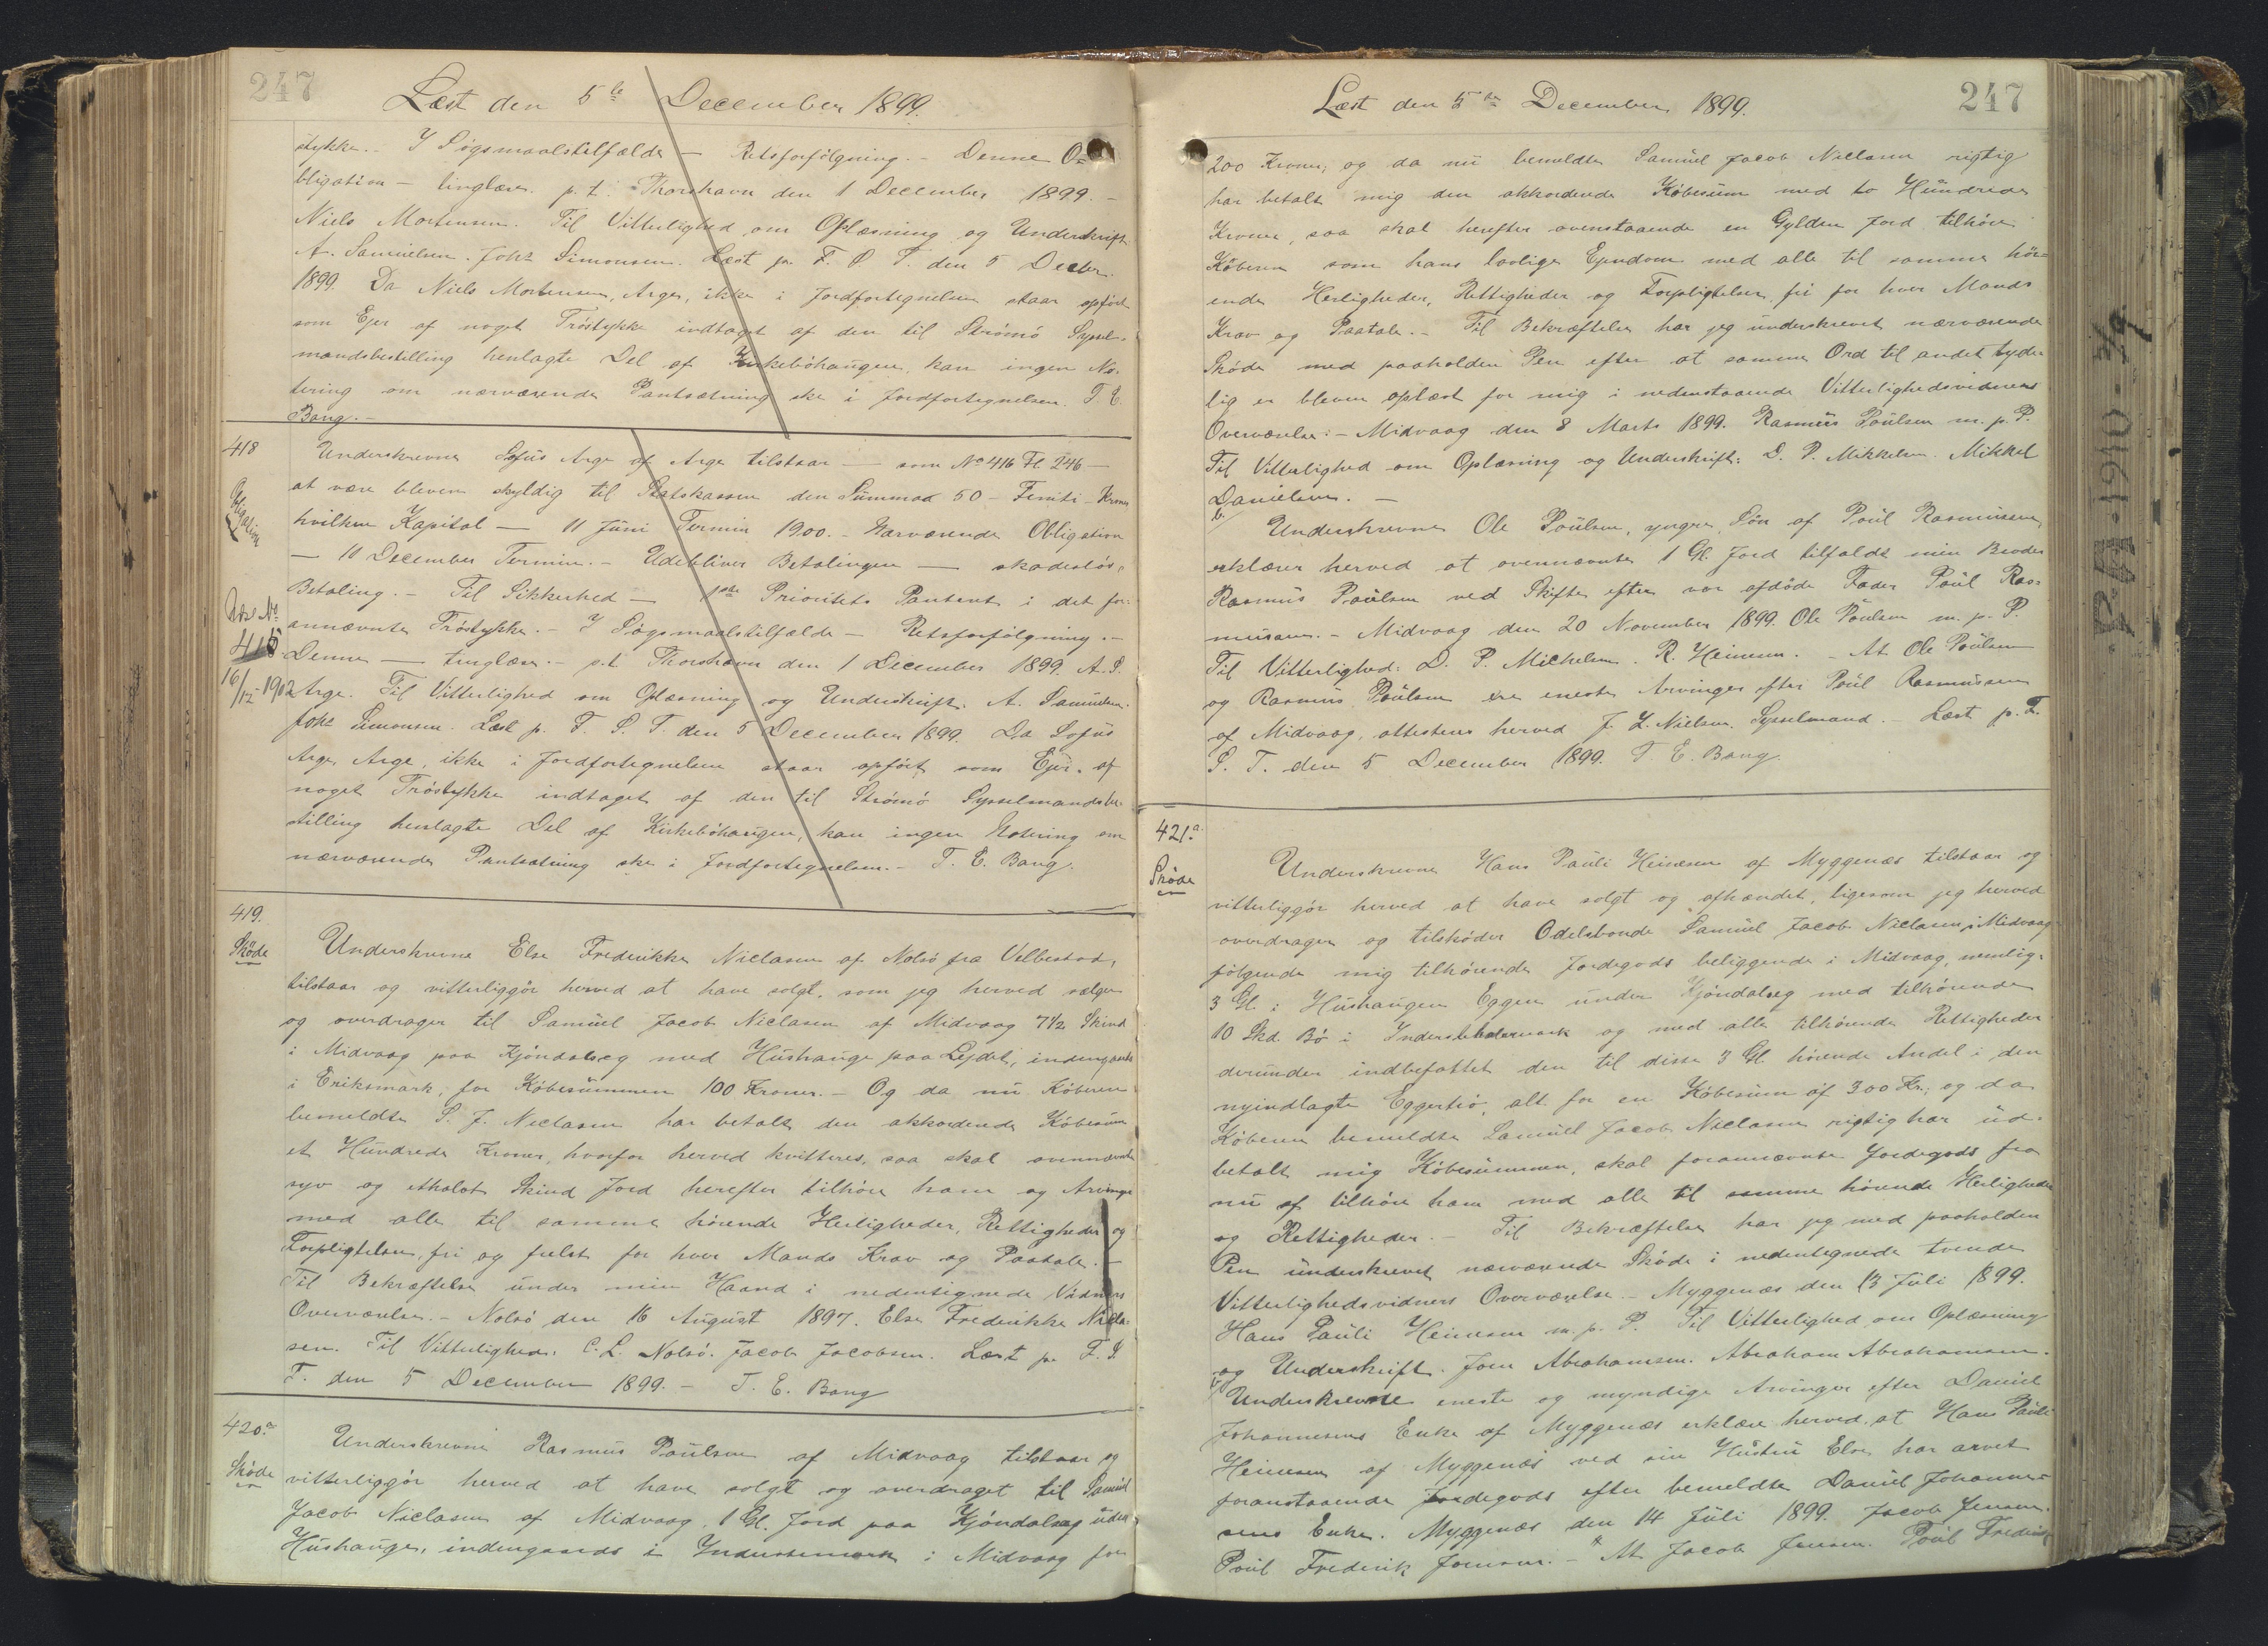 247
Læst den 5te December 1899.
stykke. - I Søgsmaalstilfælde - Retsforfølgning. - Denne O-
bligation - tinglæses. p. t. Thorshavn den 1 December 1899. -
Niels Mortensen. Til Vitterlighed om Oplæsning og Underskrift:
A. Samuelsen. Johs Simonsen. Læst p. F. S. T. den 5 Decbr.
1899. Da Niels Mortensen, Arge, ikke i Jordfortegnelsen staar opført
som Ejer af noget Tröstykke indtaget af den til Strömö Syssel-
mandsbestilling henlagte Del af Kirkebøhaugen, kan ingen No-
tering om nærværende Pantsætning ske i Jordfortegnelsen. T. E.
Bang. -
418
Obligation
Udsl. No
415
16/12 1902
Underskrevne Sofus Arge af Arge tilstaar - som No 416 Fl 246 -
at være bleven skyldig til Statskassen den Summa 50 - Femti - Kroner
hvilken Kapital - 11 Juni Termin 1900. - Nærværende Obligation
- 11 December Termin. - Udebliver Betalingen - skadesløs
Betaling. - Til Sikkerhed - 1ste Prioritets Panteret i det for-
annævnte Tröstykke. - I Søgsmaalstilfælde - Retsforfølgning. -
Denne - tinglæses. - p. t. Thorshavn den 1 December 1899. A. S.
Arge. Til Vitterlighed om Oplæsning og Underskrift. A. Samuelsen.
Johs Simonsen. Læst p. F. S. T. den 5 December 1899. Da Sofus
Arge, Arge, ikke i Jordfortegnelsen staar opført som Ejer af
noget Tröstykke indtaget af den til Strömö Sysselmandsbe-
stilling henlagte Del af Kirkebøhaugen, kan ingen Notering om
nærværende Pantsætning ske i Jordfortegnelsen. - T. E. Bang.
419.
Skøde
Underskrevne Else Frederikke Niclasen af Nolsö fra Velbestad,
tilstaar og vitterliggør herved at have solgt, som jeg herved sælger
og overdrager til Samuel Jacob Niclasen af Midvaag 7 1/2 Skind
i Midvaag paa Kjóndalseg med Hushauge paa Lejdet, indengards
i Eriksmark, for Købesummen 100 Kroner. - Og da nu Køberen
bemeldte S. J. Niclasen har betalt den akkorderede Købesum
et Hundrede Kroner, hvorfor herved kvitteres, saa skal ovennævnte
syv og ethalvt Skind Jord herefter tilhøre ham og Arvinge
med alle til samme hörende Herligheder, Rettigheder og
Forpligtelser, fri og frelst for hver Mands Krav og Paatale. -
Til Bekræftelse under min Haand i nedentegnede Vidners
Overværelse. - Nolsö den 16 August 1897. Else Frederikke Nicla-
sen. Til Vitterlighed: C. L. Nolsö. Jacob Jacobsen. Læst p. F. S.
T. den 5 December 1899. - T. E. Bang
420.a
Skøde
Underskrevne Rasmus Poulsen af Midvaag tilstaar og
vitterliggør herved at have solgt og overdraget til Samuel
Jacob Niclasen af Midvaag 1 Gl. Jord paa Kjóndalseg uden
Hushauge, indengards i Inderstemork i Midvaag for
247
Læst den 5te December 1899.
200 Kroner; og da nu bemeldte Samuel Jacob Niclasen rigtig
har betalt mig den akkorderede Købesum med to Hundrede
Kroner, saa skal herefter ovenstaaende en Gylden Jord tilhøre
Køberen som hans lovlige Ejendom med alle til samme hör-
ende Herligheder, Rettigheder og Forpligtelser, fri for hver Mands
Krav og Paatale. - Til Bekræftelse har jeg underskrevet nærværende
Skøde med paaholden Pen efter at samme Ord til andet tyde-
lig er bleven oplæst for mig i nedenstaaende Vitterlighedsvidners
Overværelse: - Midvaag den 8 Marts 1899. Rasmus Poulsen m. p. P.
Til Vitterlighed om Oplæsning og Underskrift: D. P. Mikkelsen. Mikkel
Danielsen. -
b. Underskrevne Ole Poulsen, yngre, Søn af Poul Rasmussen,
erklærer herved at ovennævnte 1 Gl. Jord tilfaldt min Broder
Rasmus Poulsen ved Skifte efter vor afdøde Fader Poul Ras-
mussen. - Midvaag den 20 November 1899. Ole Poulsen m. p. P.
Til Vitterlighed: D. P. Michelsen. R. Heinesen. - At Ole Poulsen
og Rasmus Poulsen ere eneste Arvinger efter Poul Rasmussen
af Midvaag, attesteres herved J. L. Nielsen. Sysselmand. - Læst p. F.
S. T. den 5 December 1899. T. E. Bang.
421.a
Skøde
Underskrevne Hans Pauli Heinesen af Myggenæs tilstaar og
vitterliggör herved at have solgt og afhændet, ligesom jeg herved
overdrager og tilskøder Odelsbonde Samuel Jacob Niclasen, i Midvaag
følgende mig tilhörende Jordegods beliggende i Midvaag, nemlig:
3 Gl. i Hushaugen Eggen under Kjóndalseg med tilhörende
10 Skd. Bø i Inderste mark og med alle tilhörende Rettigheder
derunder indbefattet den til disse 3 Gl. hörende Andel i den
nyindlagte Eggertrö, alt for en Købesum af 300 Kr.; og da
Køberen bemeldte Samuel Jacob Niclasen rigtig har ud-
betalt mig Købesummen, skal forannævnte Jordegods fra
nu af tilhøre ham med alle til samme hörende Herligheder
og Rettigheder. - Til Bekræftelse har jeg med paaholden
Pen underskrevet nærværende Skøde i nedentegnede tvende
Vitterlighedsvidners Overværelse. - Myggenæs den 13 Juli 1899.
Hans Pauli Heinesen m. p. P. Til Vitterlighed om Oplæsning
og Underskrift. Joen Abrahamsen. Abraham Abrahamsen.
b. Underskrevne eneste og myndige Arvinger efter Daniel
Johannesens Enke af Myggenæs erklære herved, at Hans Pauli
Heinesen af Myggenæs ved sin Hustru Else har arvet
foranstaaende Jordegods efter bemeldte Daniel Johannes-
sens Enke. Myggenæs den 14 Juli 1899. Jacob Jensen.
Poul Frederik Joensen. - At Jacob Jensen. Poul Frederik